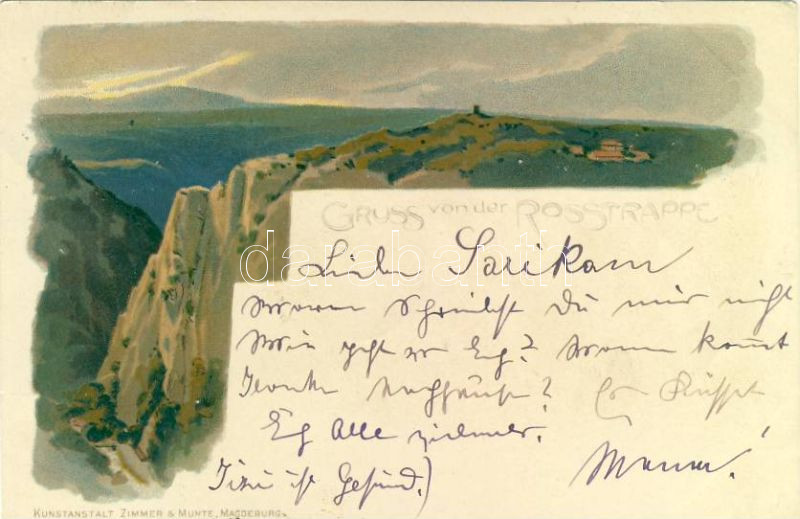 GRUSS von der ROSSTRAPPE
darabanth
Liebe Sarikam
Warum Schreibst Du mir nicht
Wie geht es Euch? Wann kommt
nachhause? Es Küsst
Euch Alle vielmals.
Mama!
ist Gesund.)
KUNSTANSTALT ZIMMER & MUNTE, MAGDEBURG.